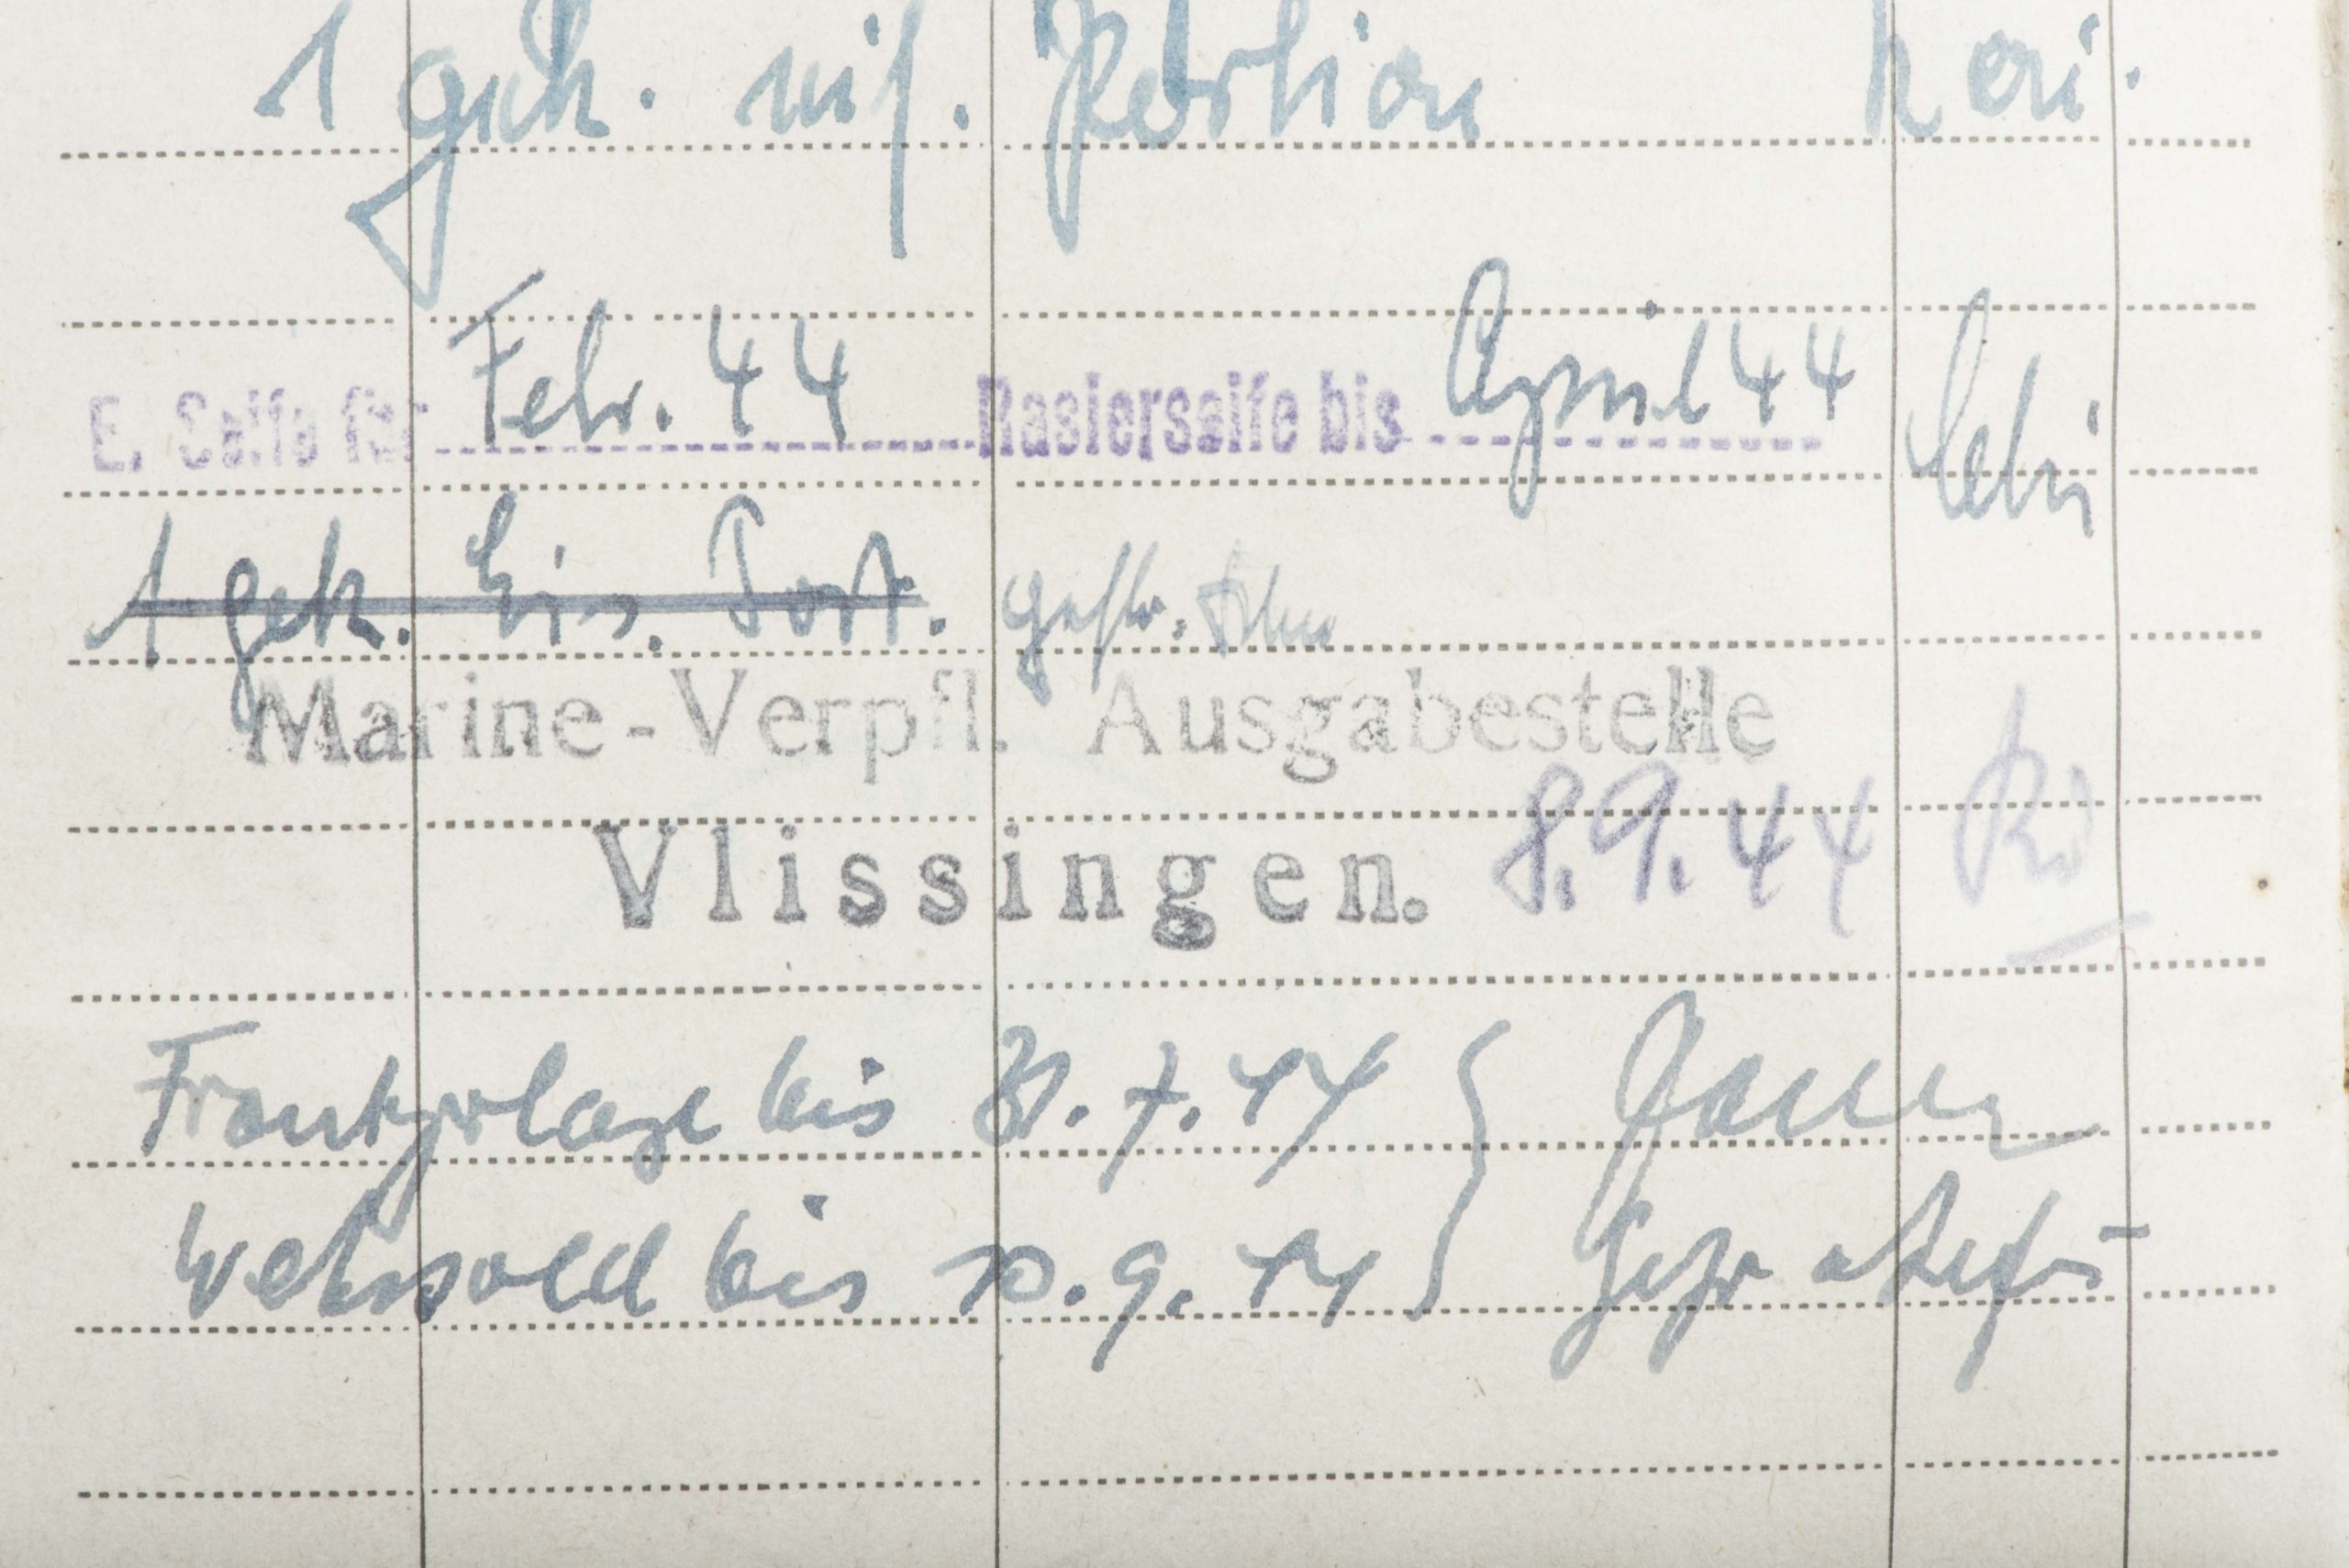 1 gek. eis. Portion
E. Seife für Febr. 44 Rasierseife bis April 44
1 gek. Eis. Port. gestr.
Marine-Verpfl. Ausgabestelle
Vlissingen. 8.9.44
Frontzulage bis 31.7.44
Wehrsold bis 10.9.44